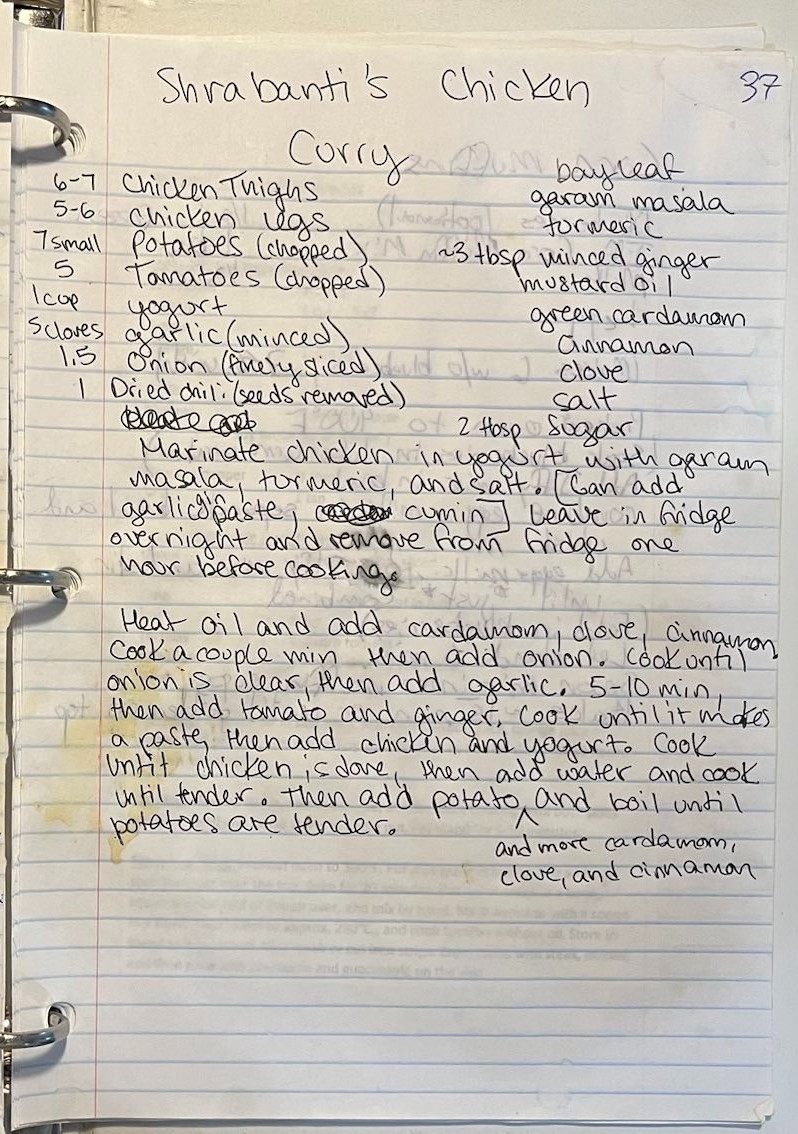 Shrabanti's Chicken
37
Curry
6-7 Chicken Thighs
5-6 chicken legs
7 small potatoes (chopped)
5 Tomatoes (chopped)
1 cup yogurt
5 cloves garlic (minced)
1.5 Onion (finely sliced)
1 Dried chili (seeds removed)
bay leaf
garam masala
turmeric
~3 tbsp minced ginger
mustard oil
green cardamom
cinnamon
clove
salt
2 tbsp sugar
Marinate chicken in yogurt with garam
masala, turmeric, and salt. [Can add
garlic paste, cumin] Leave in fridge
overnight and remove from fridge one
hour before cooking.
Heat oil and add cardamom, clove, cinnamon.
Cook a couple min then add onion. Cook until
onion is clear, then add garlic. 5-10 min,
then add tomato and ginger. Cook until it makes
a paste, then add chicken and yogurt. Cook
until chicken is done, then add water and cook
until tender. Then add potato ^ and boil until
potatoes are tender.
and more cardamom,
clove, and cinnamon